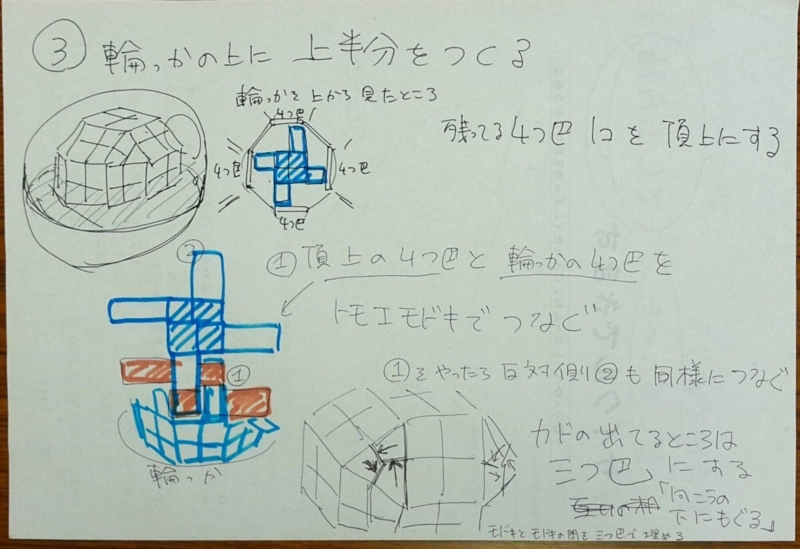 ③ 輪っかの上に 上半分をつくる
輪っかを上から見たところ
4つ巴
4つ巴
4つ巴
4つ巴
残ってる4つ巴 1コを 頂上にする
①頂上の4つ巴と 輪っかの4つ巴を
トモエモドキで つなぐ
②
①
輪っか
①をやったら 反対側②も 同様につなぐ
カドの出てるところは
三つ巴にする
「向こうの
下にもぐる」
モドキとモドキの間を三つ巴で埋める